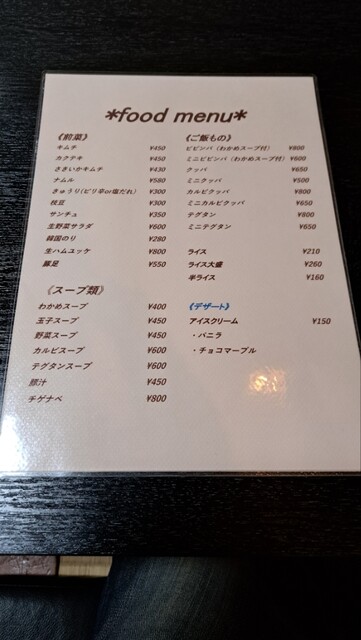 *food menu*
《前菜》
キムチ ¥450
カクテキ ¥450
さきいかキムチ ¥430
ナムル ¥580
きゅうり(ピリ辛or塩だれ) ¥300
枝豆 ¥300
サンチュ ¥350
生野菜サラダ ¥600
韓国のり ¥280
生ハムユッケ ¥800
豚足 ¥550
《スープ類》
わかめスープ ¥400
玉子スープ ¥450
野菜スープ ¥450
カルビスープ ¥600
テグタンスープ ¥600
豚汁 ¥450
チゲナベ ¥800
《ご飯もの》
ビビンバ(わかめスープ付) ¥800
ミニビビンバ(わかめスープ付) ¥600
クッパ ¥650
ミニクッパ ¥500
カルビクッパ ¥800
ミニカルビクッパ ¥650
テグタン ¥800
ミニテグタン ¥650
ライス ¥210
ライス大盛 ¥260
半ライス ¥160
《デザート》
アイスクリーム ¥150
・バニラ
・チョコマーブル